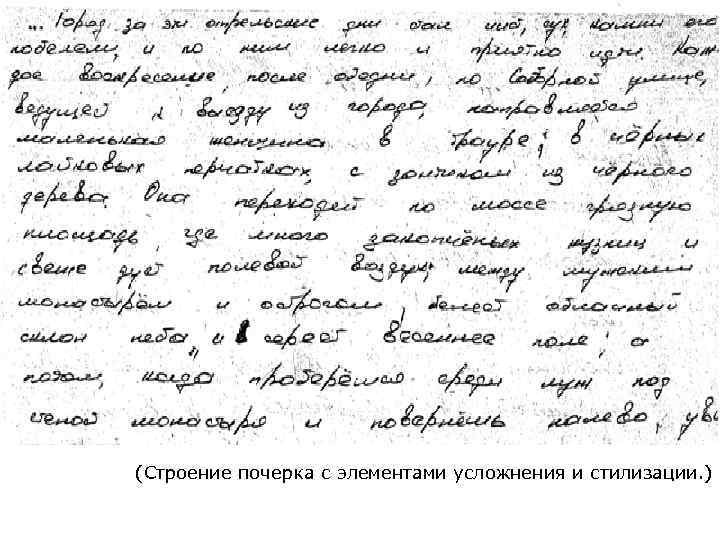 ... Город за эти апрельские дни стал чист, сух, камни его
побелели, и по ним легко и приятно идти. Каж
дое воскресение, после обедни, по Соборной улице,
ведущей к выезду из города, направляется
маленькая женщина в трауре, в чёрных
лайковых перчатках, с зонтиком из чёрного
дерева. Она переходит по шоссе грязную
площадь, где много закопчёных кузниц и
свеже дует полевой воздух; между мужским
монастырём и острогом, белеет облачный
склон неба и сереет весеннее поле, а
потом, когда проберёшся среди луж под
стеной монастыря и повернёшь налево, ув
(Строение почерка с элементами усложнения и стилизации.)